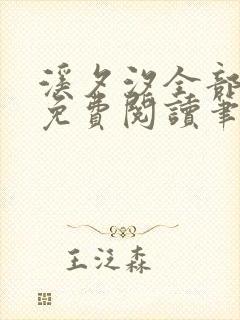 溪夕汐全部
免費閱讀筆
王泛森